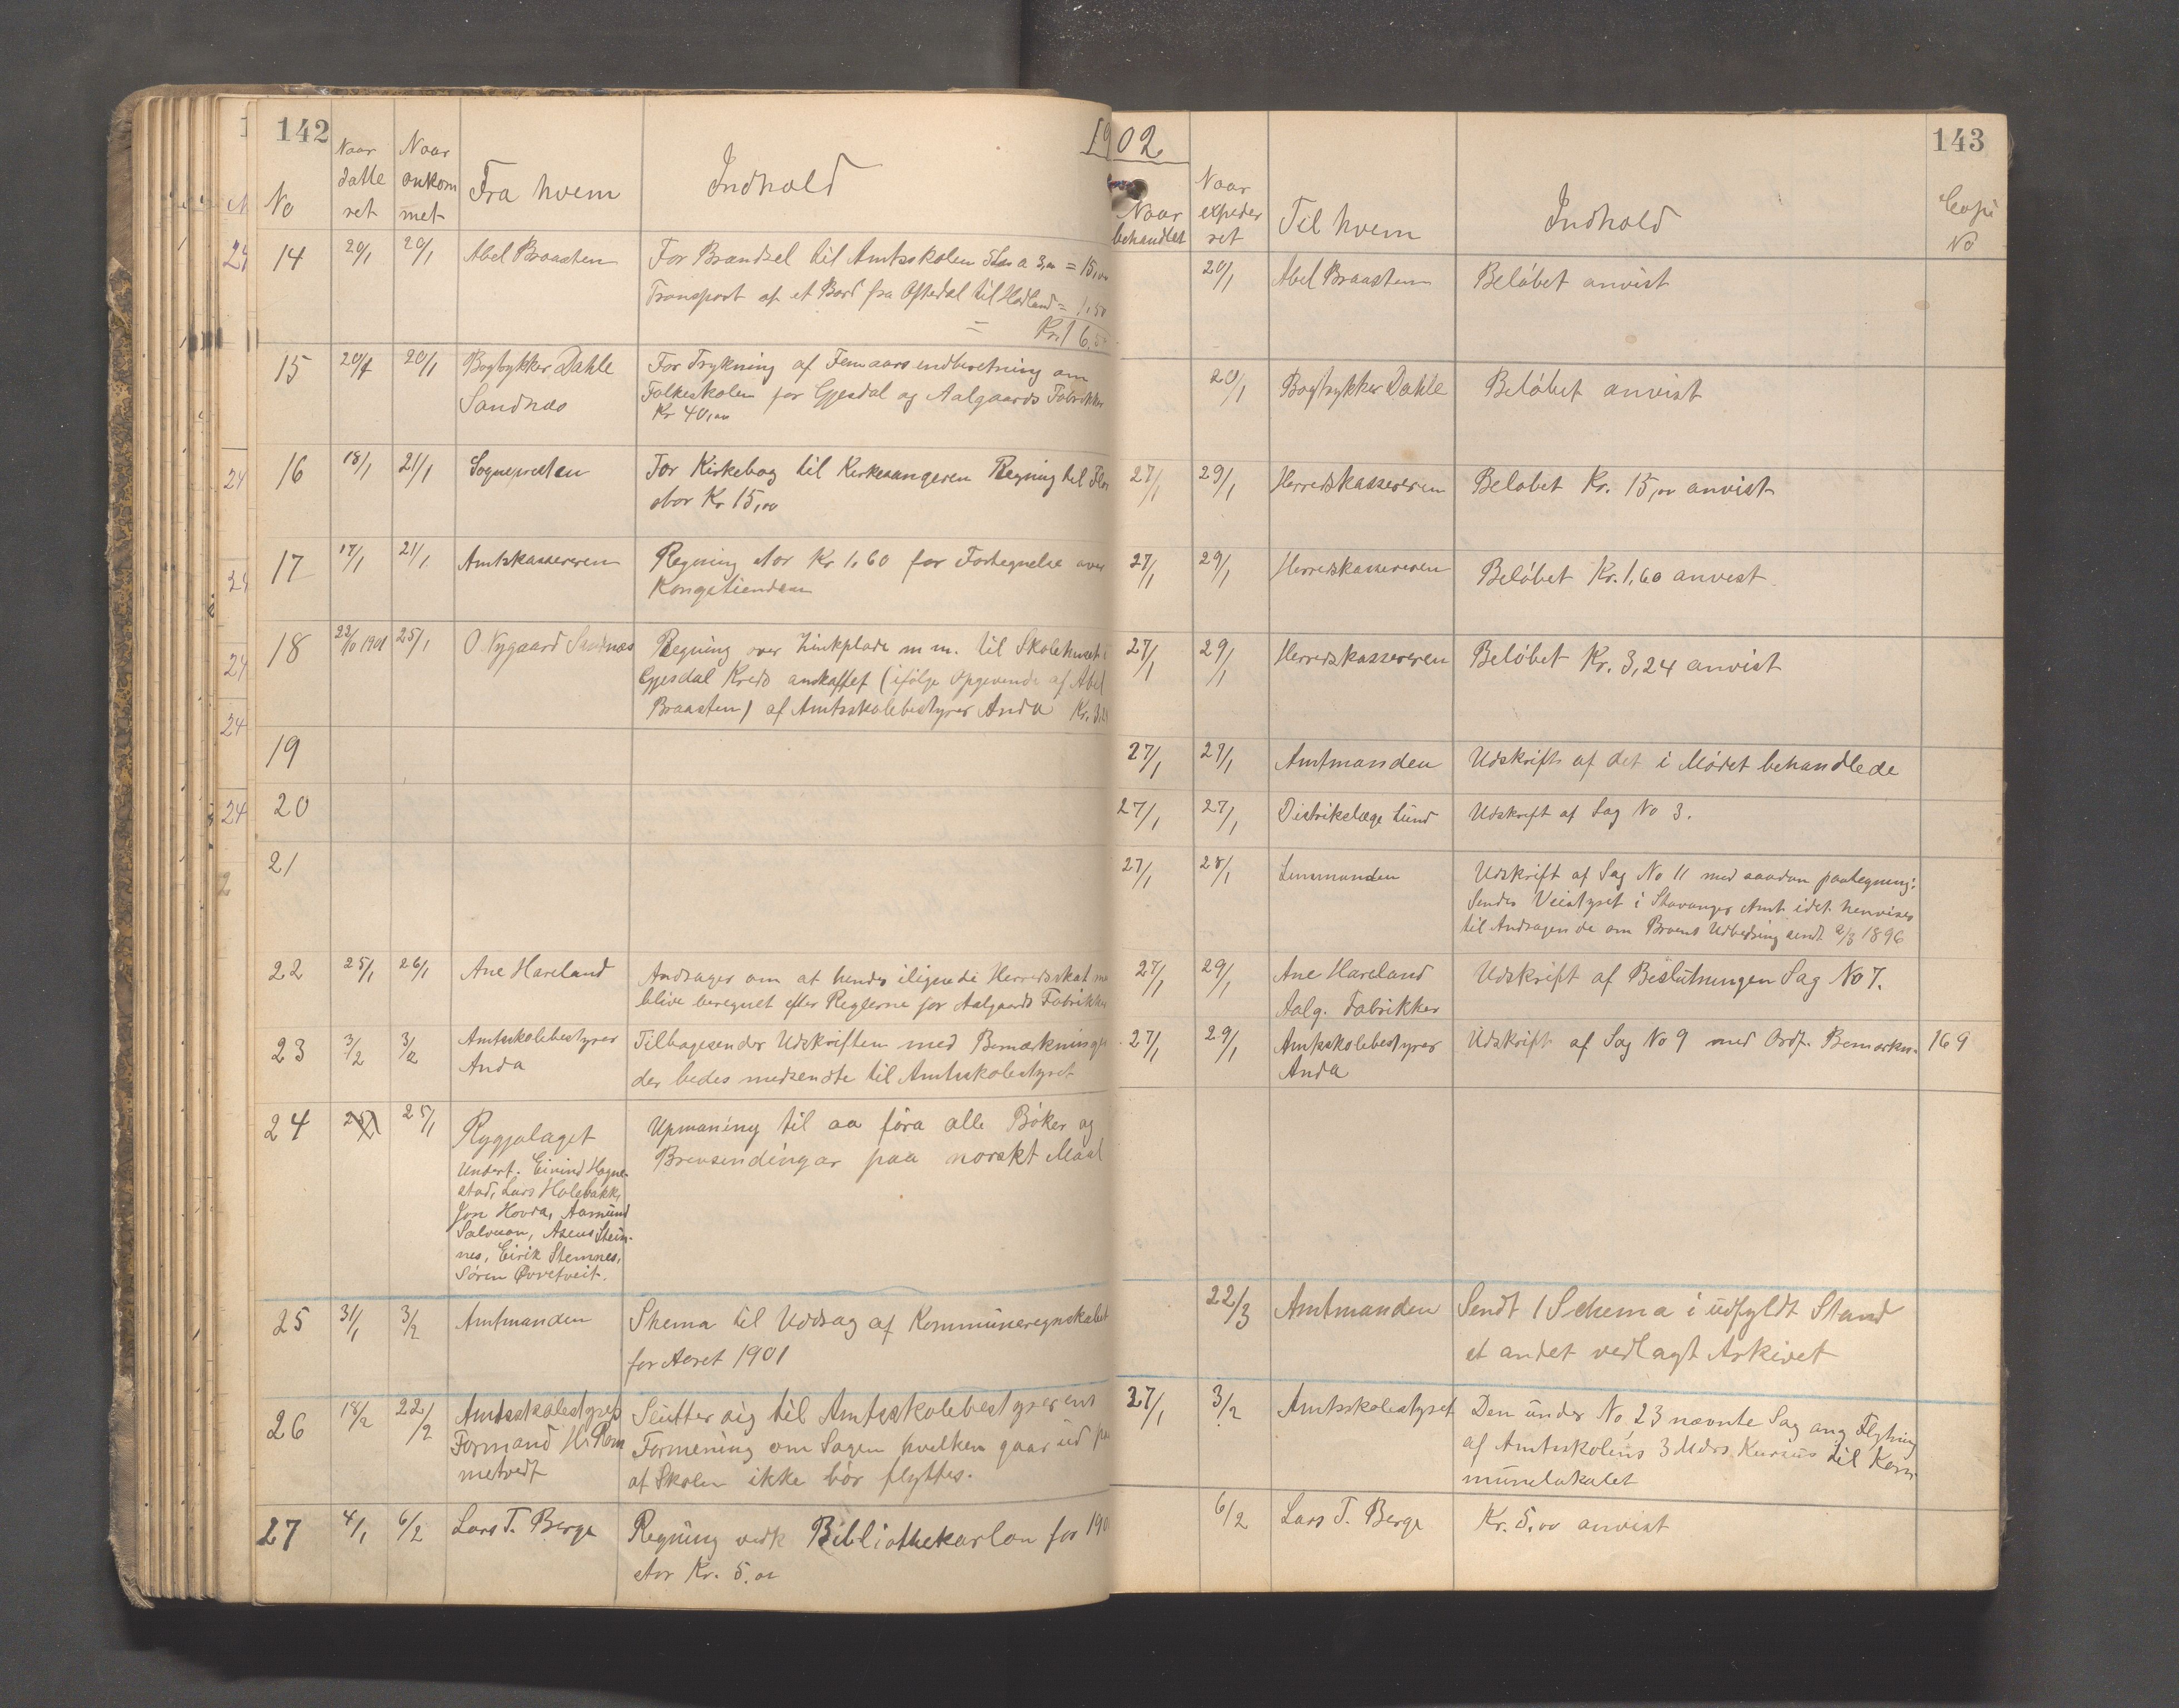 142
1902
143
No
Naar datteret
Naar ankommet
Fra hvem
Indhold
Naar behandlet
Naar expederet
Til hvem
Indhold
Copi No
14 20/1 20/1 Abel Braasten For Brændsel til Amtsskolen a 3,00 = 15,00
Transport af et Bord fra Oftedal til Hodland = 1,50
Kr. 16,5
20/1 Abel Braasten Beløbet anvist
15 20/1 20/1 Bogtykker Dahle For Trykning af Femaarsindberetning om
Sandnæs Folkeskolen for Gjesdal og Aalgaards Fabrikker
Kr 40,00
20/1 Bogtrykker Dahle Beløbet anvist
16 18/1 21/1 Sognepresten For Kirkebog til Kirkesangeren Regning til
stor Kr 15,00
27/1 29/1 Herredskassereren Beløbet Kr. 15,00 anvist
17 17/1 21/1 Amtskassereren Regning stor Kr 1,60 for Fortegnelse over
Kongetienden
27/1 29/1 Herredskassereren Beløbet Kr. 1,60 anvist
18 22/10 1901 25/1 O. Nygaard Sandnæs Regning over Zinkplade m m. til Skolehuset i
Gjesdal Kreds anskaffet (ifølge Opgivende af Abel
Braasten) af Amtsskolebestyrer Anda Kr. 3,2
27/1 29/1 Herredskassereren Beløbet Kr. 3,24 anvist
19 27/1 27/1 Amtmanden Udskrift af det i Mødet behandlede
20 27/1 27/1 Distrikslæge Lund Udskrift af Sag No 3.
21 27/1 28/1 Lensmanden Udskrift af Sag No 11 med saadan paategning:
Sendes Veistyret i Stavanger Amt idet henvises
til Andragende om Broens Udbedring sendt 2/3 1896
22 25/1 26/1 Ane Hareland Andrager om at hendes ilignede Herredsskat m
blive beregnet efter Reglerne for Aalgaards Fabrikker
27/1 29/1 Ane Hareland Udskrift af Beslutningen Sag No 7.
Aalg. Fabrikker
23 3/2 3/2 Amtsskolebestyrer Tilbagesender Udskriften med Bemærkninger
Anda der bedes medsendte til Amtsskolestyret
27/1 29/1 Amtsskolebestyrer Udskrift af Sag No 9 med Ordf. Bemærkn. 169
Anda
24 25/1 25/1 Rygjalaget Upmaning til aa føra alle Bøker og
Brevsendingar paa norskt Maal
Undert. Eivind Hogne-
stad, Lars Holebakk,
Jon Hovda, Aamund
Salveson, Asens Stein-
nes, Eirik Stemnes,
Søren Øvretveit.
25 31/1 3/2 Amtmanden Skema til Uddrag af Kommuneregnskabet
for Aaret 1901
22/3 Amtmanden Sendt 1 Schema i udfyldt Stand
et andet vedlagt Arkivet
26 18/2 22/2 Amtsskolestyrets Slutter sig til Amtsskolebestyrerens
Formand H. Rom Formening om Sagen hvilken gaar ud paa
metvedt at Skolen ikke bør flyttes.
27/1 3/2 Amtsskolestyret Den under No 23 nævnte Sag ang Flytning
af Amtsskolens 3 Mdrs. Kursus til Kom-
munelokalet
27 4/1 6/2 Lars T. Berge Regning vedk Bibliothekarløn for 190
stor Kr. 5,00
6/2 Lars T. Berge Kr. 5,00 anvist